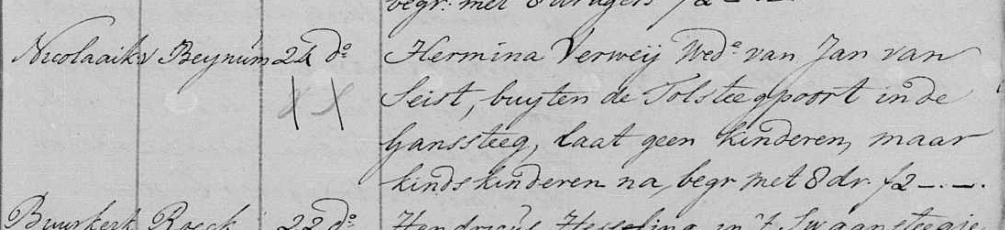 begr: met 8 dragers f2 -.-.
Nicolaaik: v Beynum 24 do. Hermina Verweij Wedo. van Jan van
Seist, buyten de Tolsteegpoort in de
Ganssteeg, laat geen kinderen, maar
kindskinderen na, begr met 8 dr. f2 -.-.
Buurkerk Roeck 22 do. Hendricus Hesseling in 't Swaansteegje